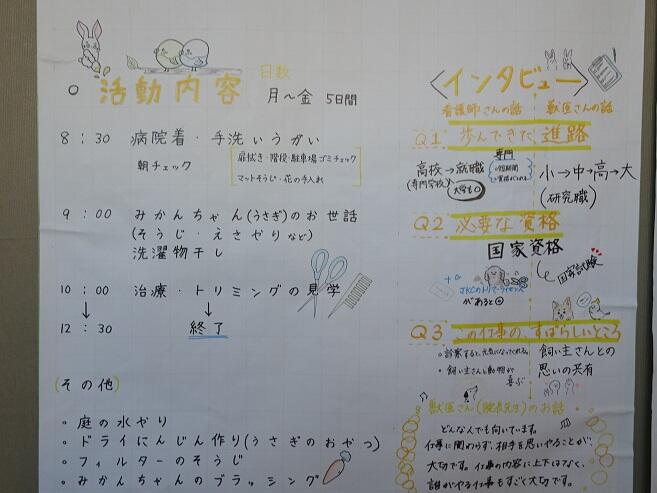 活動内容
日数
月〜金 5日間
8:30 病院着・手洗いうがい
朝チェック
扉拭き・階段・駐車場ゴミチェック
マットそうじ・花の手入れ
9:00 みかんちゃん(うさぎ)のお世話
(そうじ・えさやりなど)
洗濯物干し
10:00 治療・トリミングの見学
↓ ↓
12:30 終了
(その他)
。庭の水やり
。ドライにんじん作り(うさぎのおやつ)
。フィルターのそうじ
。みかんちゃんのブラッシング
<インタビュー>
看護師さんの話 獣医さんの話
Q1 歩んできた、進路
高校→就職
(専門学校)
大学も○
専門
小→中→高→大
(研究職)
Q2 必要な資格
国家資格
国家試験
+α
JKCのトリマーライセンス
があると
Q3 この仕事の、すばらしいところ
。診察すると、元気になってくれる。
。飼い主さんと動物が
喜ぶ
飼い主さんとの
思いの共有
獣医さん(院長先生)のお話
どんな人でも向いています。
仕事に関わらず、相手を思いやることが、
大切です。仕事の内容に上下はなく、
誰がやる仕事もすごく大切です。